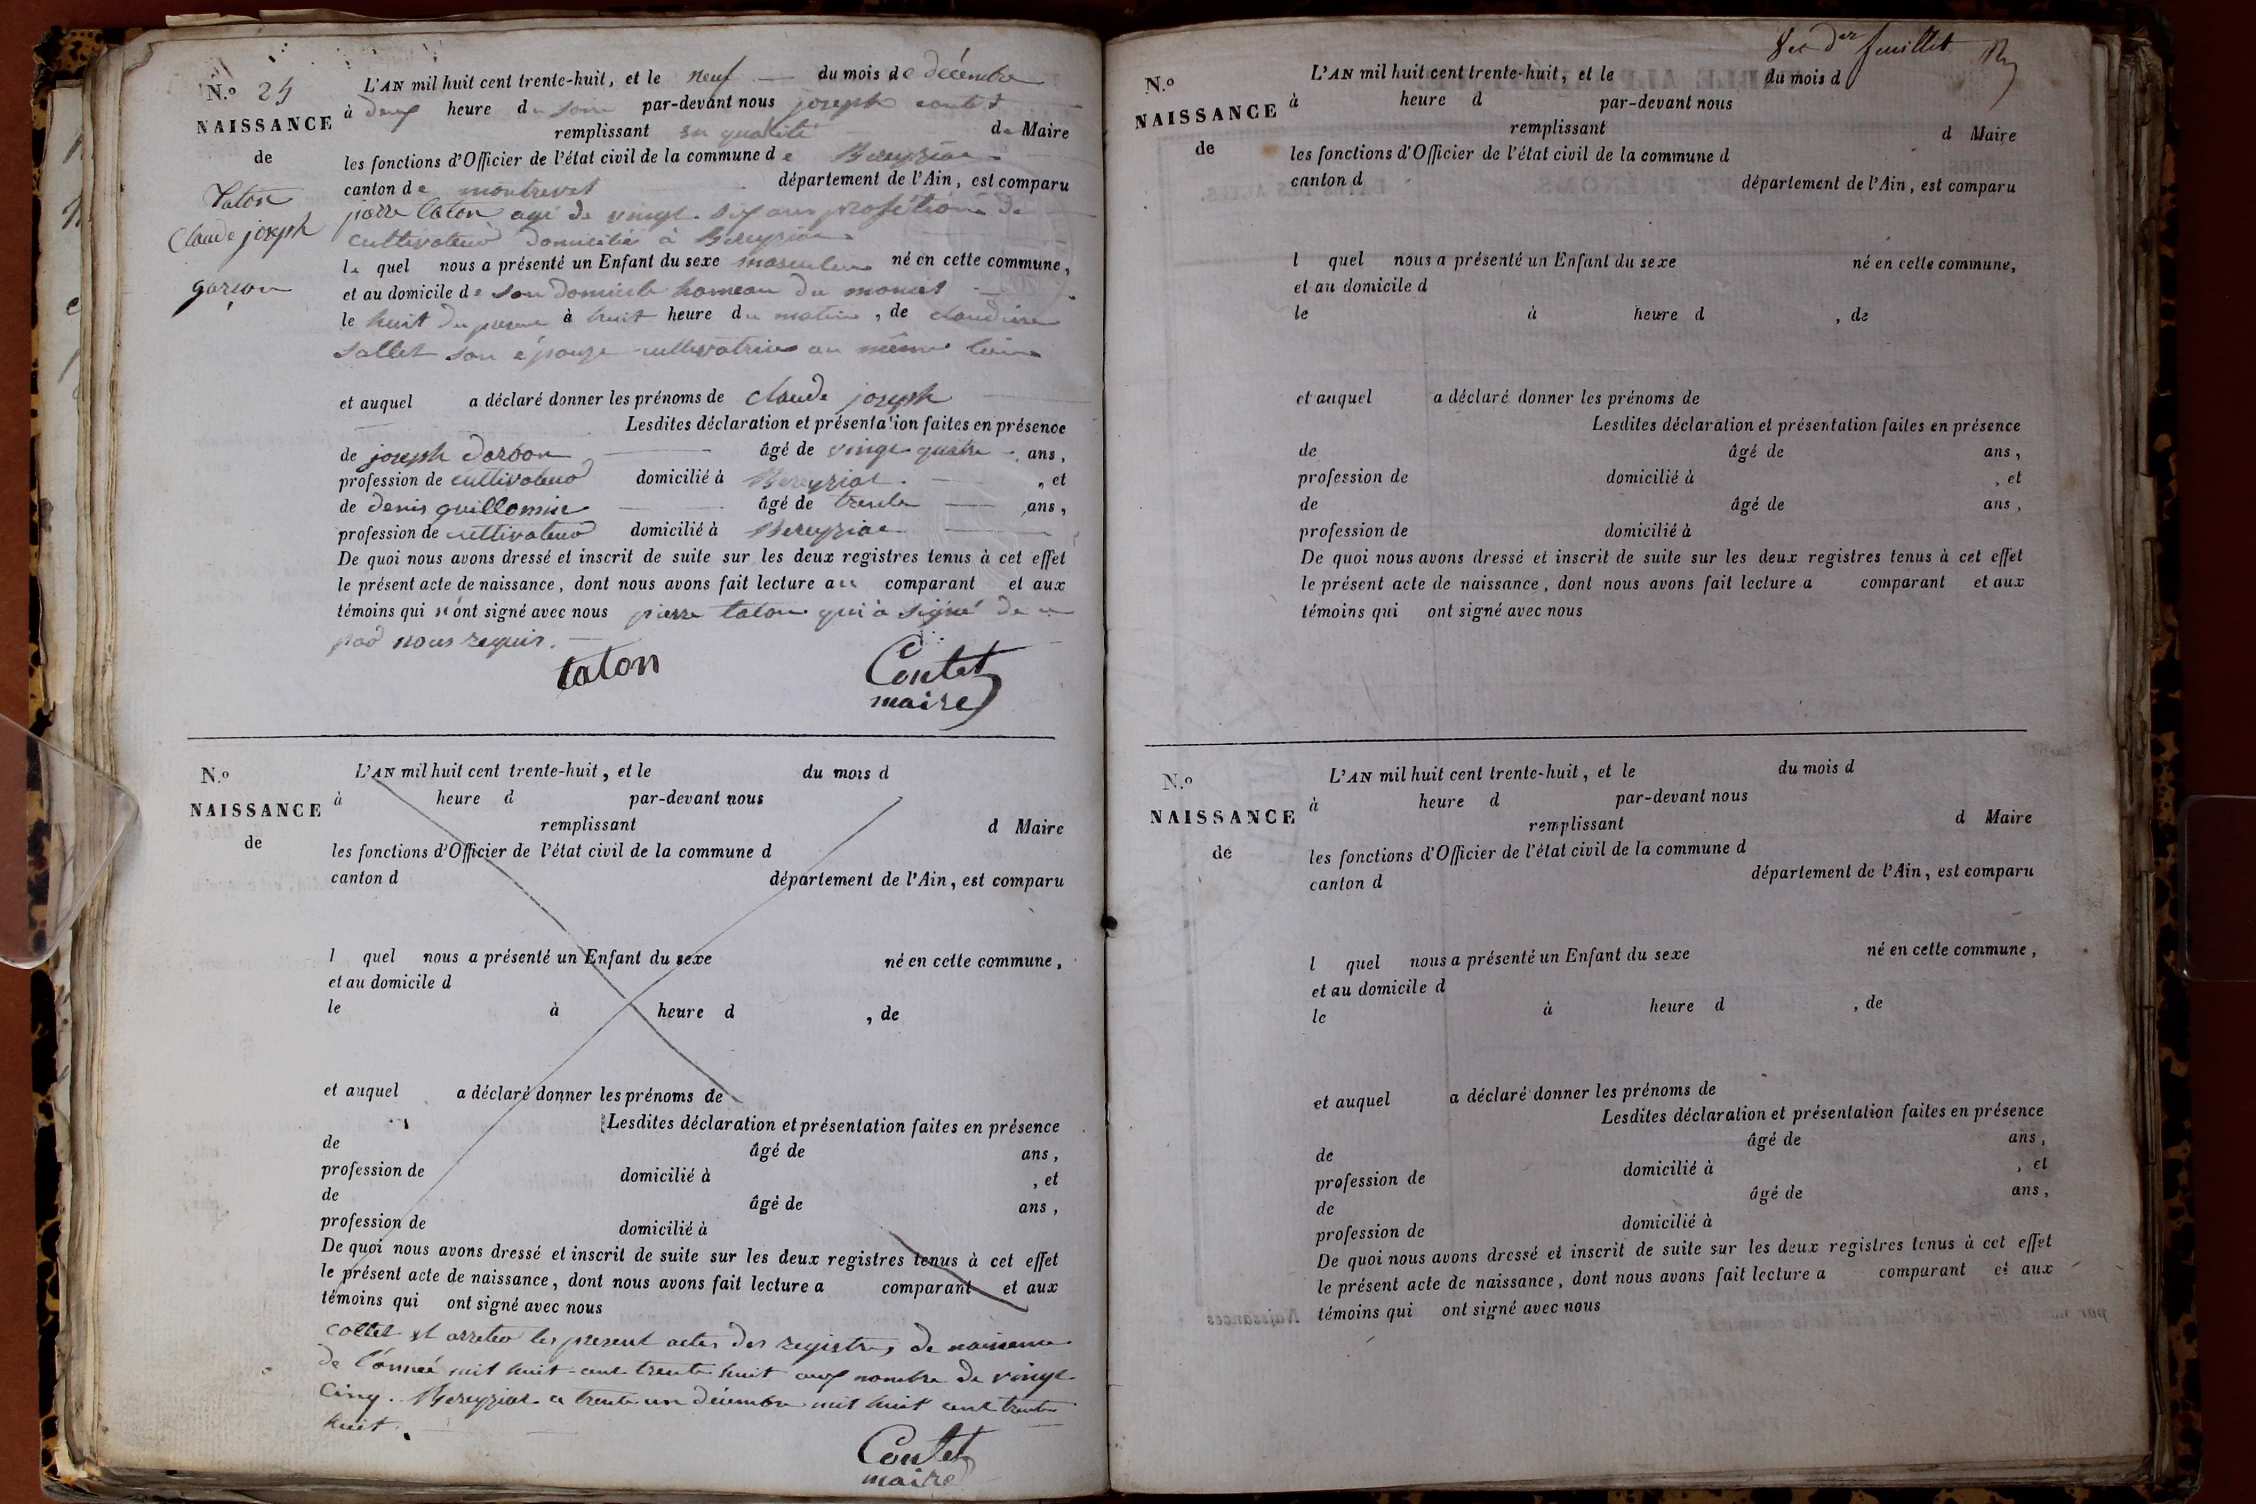 N.º 25
NAISSANCE
de
Taton
Claude joseph
garçon
L'AN mil huit cent trente-huit, et le neuf du mois de décembre
à deux heure du soir par-devant nous joseph contet
remplissant en qualité de Maire
les fonctions d'Officier de l'état civil de la commune de Bereyziat
canton de montrevet département de l'Ain, est comparu
pierre taton agé de vingt-six ans profétion de
cultivateur domicilié à Bereyziat
le quel nous a présenté un Enfant du sexe masculin né en cette commune,
et au domicile de son domicile hameau du
le huit du présent à huit heure du matin, de claudine
sallet son épouze cultivatrice au même lieu
et auquel a déclaré donner les prénoms de claude joseph
Lesdites déclaration et présentation faites en présence
de joseph darbon âgé de vingt quatre ans,
profession de cultivateur domicilié à Bereyziat, et
de denis guillomin âgé de trente ans,
profession de cultivateur domicilié à Bereyziat
De quoi nous avons dressé et inscrit de suite sur les deux registres tenus à cet effet
le présent acte de naissance, dont nous avons fait lecture au comparant et aux
témoins qui n'ont signé avec nous pierre taton qui a signé de ce
par nous requis.
taton
Contet
maire
N.º
NAISSANCE
de
L'AN mil huit cent trente-huit, et le du mois d
à heure d par-devant nous
remplissant d Maire
les fonctions d'Officier de l'état civil de la commune d
canton d département de l'Ain, est comparu
l quel nous a présenté un Enfant du sexe né en cette commune,
et au domicile d
le à heure d , de
et auquel a déclaré donner les prénoms de
Lesdites déclaration et présentation faites en présence
de âgé de ans,
profession de domicilié à , et
de âgé de ans,
profession de domicilié à
De quoi nous avons dressé et inscrit de suite sur les deux registres tenus à cet effet
le présent acte de naissance, dont nous avons fait lecture a comparant et aux
témoins qui ont signé avec nous
et arreter les present actes des registres de naissance
de l'année mil huit cent trente huit aux nombre de vingt
Cinq. Bereyziat ce trente un décembre mil huit cent trente
huit.
Contet
maire
feuillet
N.º
NAISSANCE
de
L'AN mil huit cent trente-huit, et le du mois d
à heure d par-devant nous
remplissant d Maire
les fonctions d'Officier de l'état civil de la commune d
canton d département de l'Ain, est comparu
l quel nous a présenté un Enfant du sexe né en cette commune,
et au domicile d
le à heure d , de
et auquel a déclaré donner les prénoms de
Lesdites déclaration et présentation faites en présence
de âgé de ans,
profession de domicilié à , et
de âgé de ans,
profession de domicilié à
De quoi nous avons dressé et inscrit de suite sur les deux registres tenus à cet effet
le présent acte de naissance, dont nous avons fait lecture a comparant et aux
témoins qui ont signé avec nous
N.º
NAISSANCE
de
L'AN mil huit cent trente-huit, et le du mois d
à heure d par-devant nous
remplissant d Maire
les fonctions d'Officier de l'état civil de la commune d
canton d département de l'Ain, est comparu
l quel nous a présenté un Enfant du sexe né en cette commune,
et au domicile d
le à heure d , de
et auquel a déclaré donner les prénoms de
Lesdites déclaration et présentation faites en présence
de âgé de ans,
profession de domicilié à , et
de âgé de ans,
profession de domicilié à
De quoi nous avons dressé et inscrit de suite sur les deux registres tenus à cet effet
le présent acte de naissance, dont nous avons fait lecture a comparant et aux
témoins qui ont signé avec nous